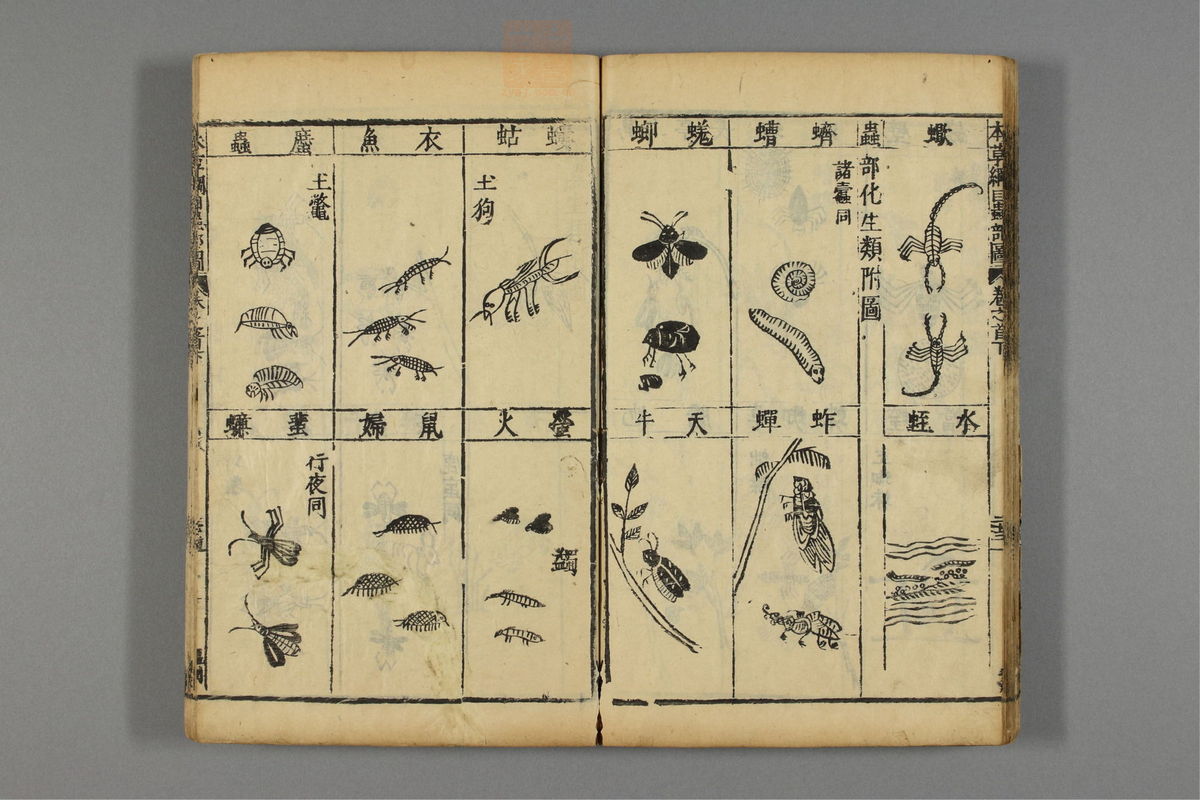 本草綱目蟲部圖 卷之首下
蠍
水蛭
蟲部化生類附圖
蠐螬
諸蠹同
蚱蟬
蜣蜋
天牛
螻蛄
土狗
螢火
蠲
衣魚
鼠婦
䗪蟲
土鱉
蜚蠊
行夜同